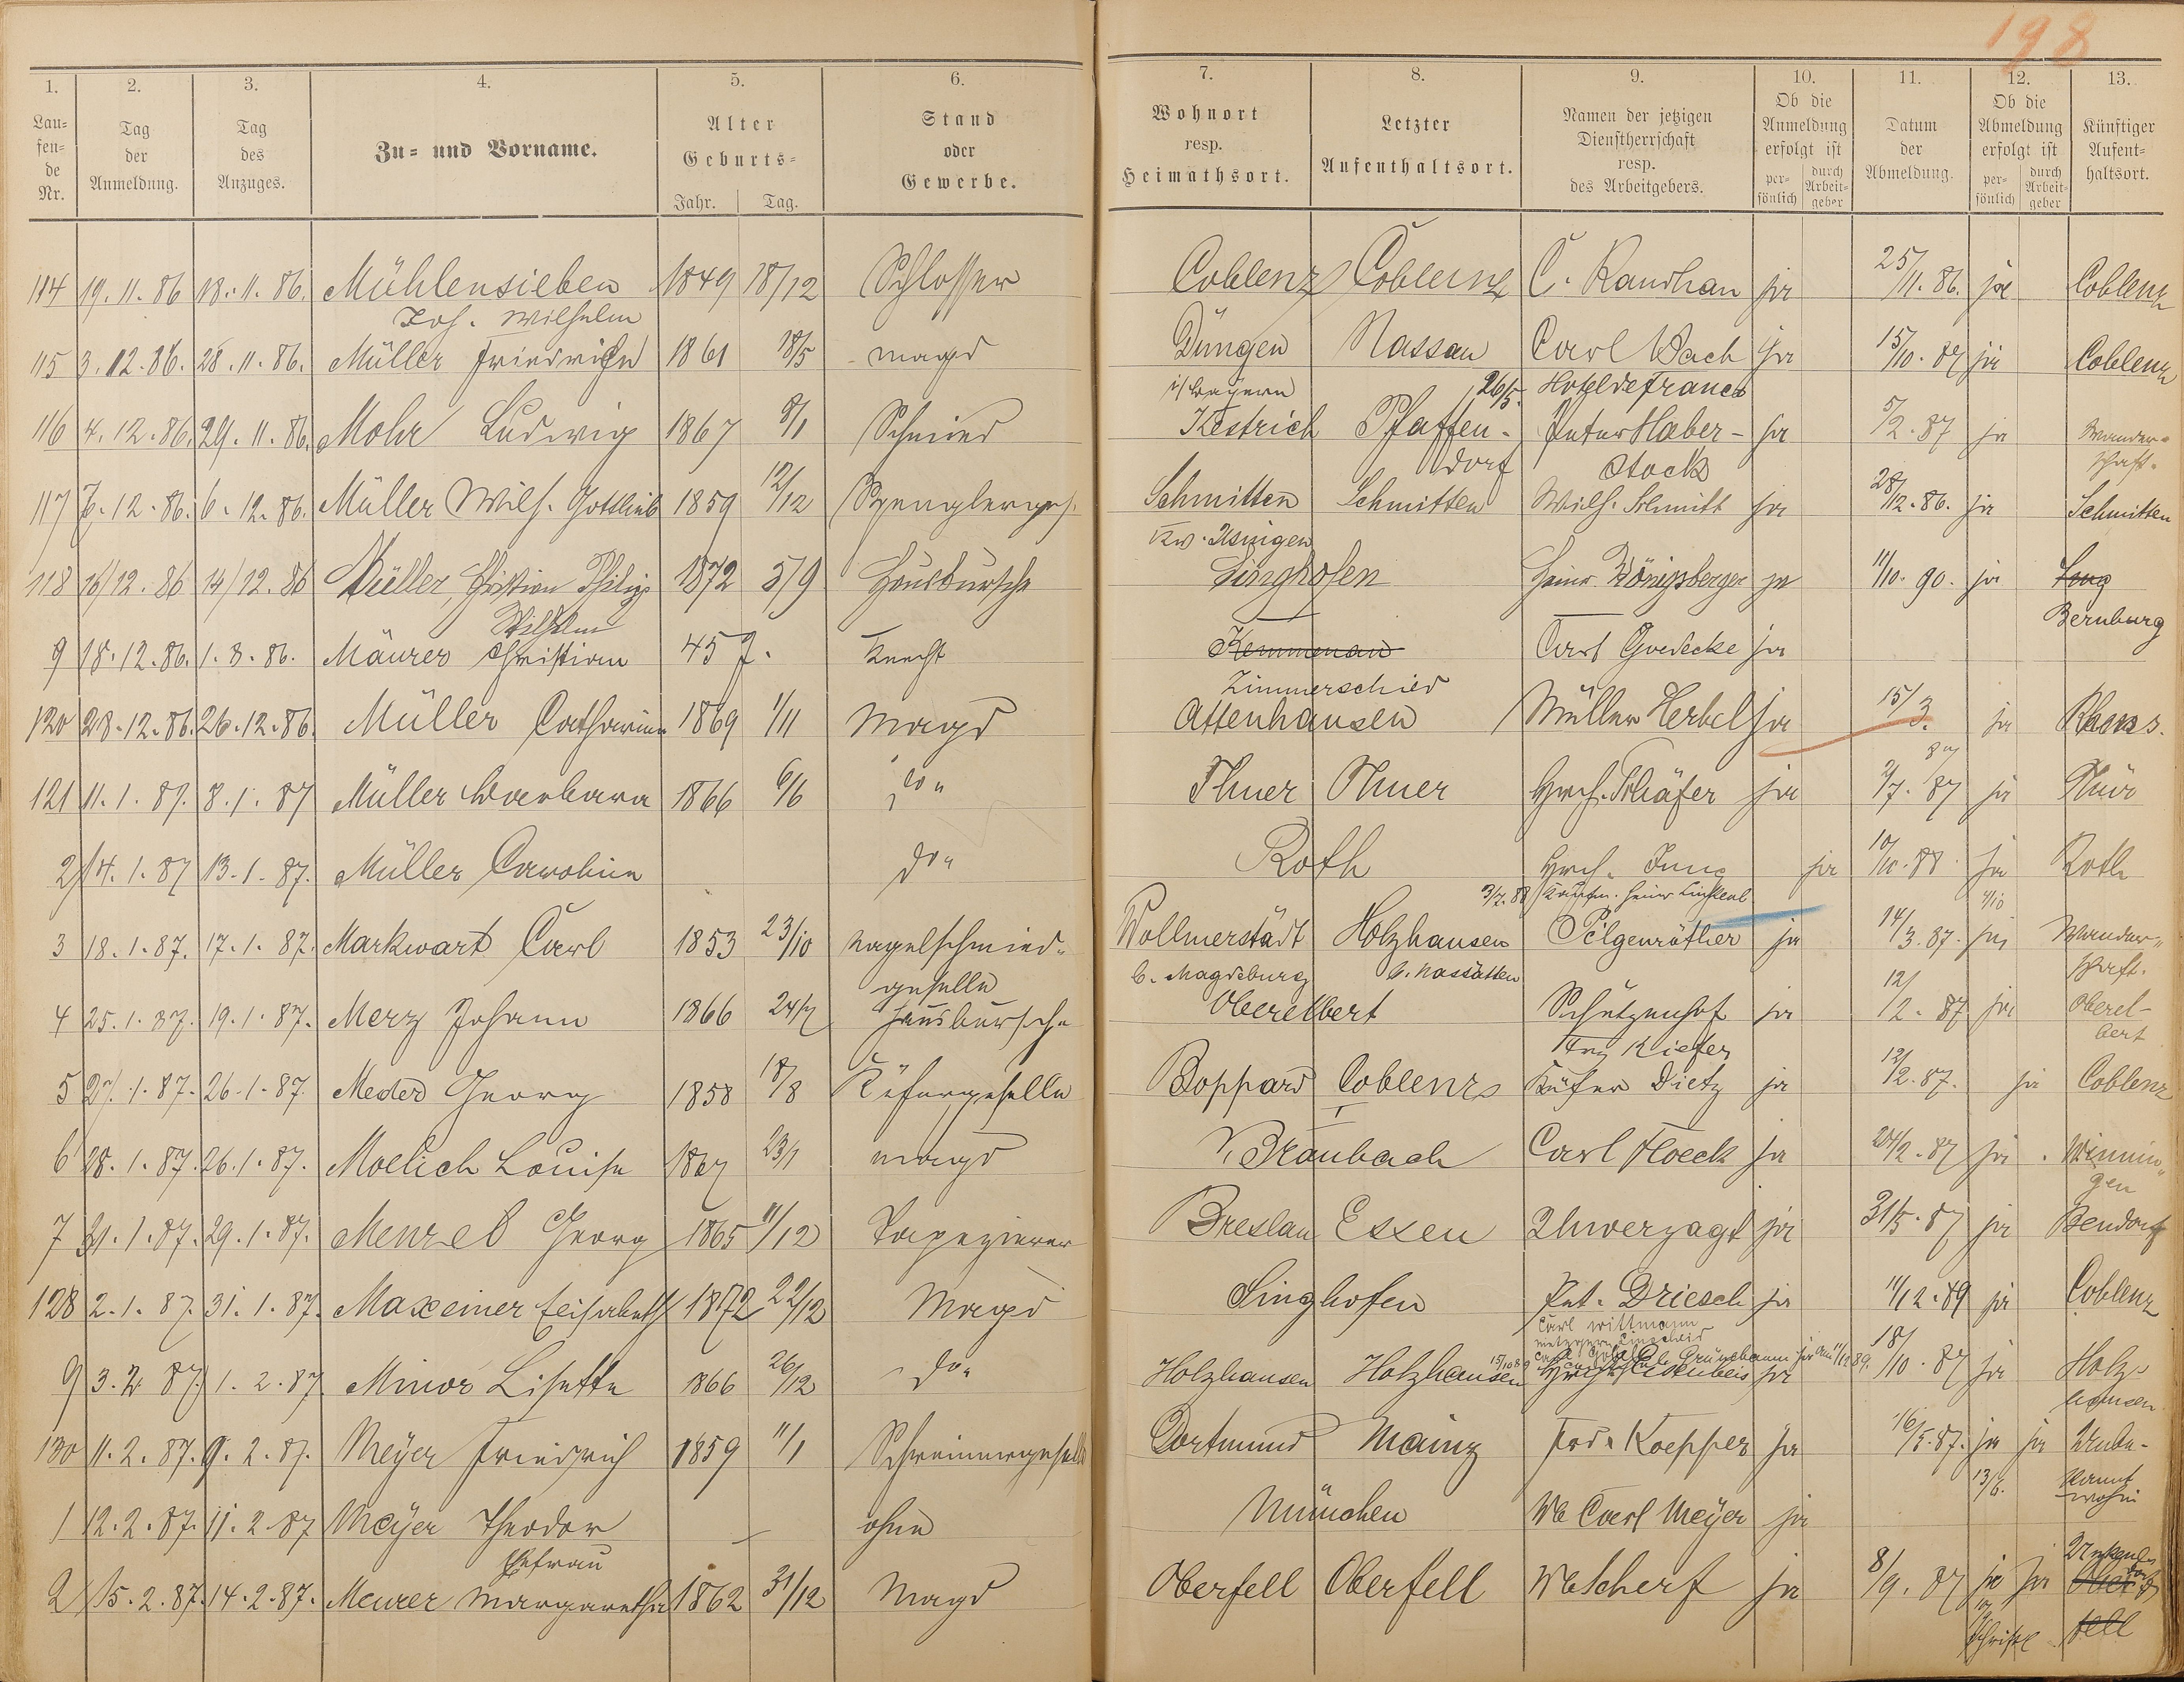 198
1. 2. 3. 4. 5. 6. 7. 8. 9. 10. 11. 12. 13.
Lau=
fen=
de
Nr.
Tag
der
Anmeldung.
Tag
des
Anzuges.
Zu= und Vorname.
Alter
Geburts=
Jahr. Tag.
Stand
oder
Gewerbe.
Wohnort
resp.
Heimathsort.
Letzter
Aufenthaltsort.
Namen der jetzigen
Dienstherrschaft
resp.
des Arbeitgebers.
Ob die
Anmeldung
erfolgt ist
per=
sönlich
durch
Arbeit=
geber
Datum
der
Abmeldung.
Ob die
Abmeldung
erfolgt ist
per=
sönlich
durch
Arbeit=
geber
Künftiger
Aufent=
haltsort.
114 19.11.86 18.11.86. Mühlensieben 1849 18/12 Schlosser Coblenz Coblenz C. Randhan ja 25/11.86. ja Coblenz
Joh. Wilhelm
115 3.12.86. 28.11.86. Müller Friedrich 1861 18/5 Magd Düngen Nassau Carl Bach ja 15/10.87 ja Coblenz
i/Bayern 26/5. Hotel de France
116 4.12.86. 29.11.86. Mohr Ludwig 1867 8/1 Schmied Kestrich Pfaffen- Peter Haber- ja 5/2.87 ja Wander=
dorf stock schaft.
117 7.12.86. 6.12.86. Müller Wilh. Gottlieb 1859 12/12 Spenglerges. Schmitten Schmitten Wilh. Schmitt ja 28/12.86. ja Schmitten
Kr. Usingen
118 16/12.86 14/12.86 Müller, Christian Philipp 1872 5/9 Hausbursche Singhofen Heinr. Königsberger ja 11/10.90. ja
Wilhelm Bernburg
9 18.12.86. 1.8.86. Maurer Christian 45 J. Knecht Kemmenau Carl Goedecke ja
Zimmerschied
120 28.12.86. 26.12.86. Müller Catharina 1869 1/11 Magd Attenhausen Müller Herbel ja 15/3. ja Rhens.
87
121 11.1.87. 8.1.87 Müller Barbara 1866 6/6 do" Thuer Thuer Hrch. Schäfer ja 2/7.87 ja Thür
2 14.1.87 13.1.87. Müller Caroline do" Roth Hrch. Jung ja 10/10.88 ja Roth
3/7.88
3 18.1.87. 17.1.87. Markwart Carl 1853 23/10 Nagelschmied= Wollmerstädt Holzhausen Pilgenröther ja 14/3.87. ja Wander=
geselle b. Magdeburg b. Nastätten schaft.
4 25.1.87. 19.1.87. Merz Johann 1866 24/7 Hausbursche Oberelbert Schützenhof ja 12/2.87 ja Oberel-
bert
Kiefer
5 27.1.87. 26.1.87. Meder Georg 1858 18/8 Küfergeselle Boppard Coblenz Küfer Dietz ja 12/2.87. ja Coblenz
6 28.1.87. 26.1.87. Moelich Louise 1867 23/1 Magd Braubach Carl Floeck ja 24/2.87 ja Winnin=
gen
7 31.1.87. 29.1.87. Menzel Georg 1865 11/12 Tapezierer Breslau Essen Unverzagt ja 31/5.87 ja Bendorf
128 2.1.87. 31.1.87. Maxeiner Elisabeth 1872 22/12 Magd Singhofen Pet. Driesch ja 11/12.89 ja Coblenz
Carl Wittmann
9 3.2.87. 1.2.87 Minor Lisette 1866 26/12 do" Holzhausen Holzhausen ja 18/10.87 ja Holz=
hausen
130 11.2.87. 9.2.87. Meyer Friedrich 1859 11/1 Schreinergeselle Dortmund Mainz Frd. Koepper ja 16/5.87. ja ja Unbe-
13/6. kannt
wohin
1 12.2.87. 11.2.87 Meyer Theodor - ohne München Wb Carl Meyer ja
Ehefrau
2 15.2.87. 14.2.87. Meurer Margaretha 1862 31/12 Magd Oberfell Oberfell Wb Scherf ja 8/9.87 ja ja
Ober
fell